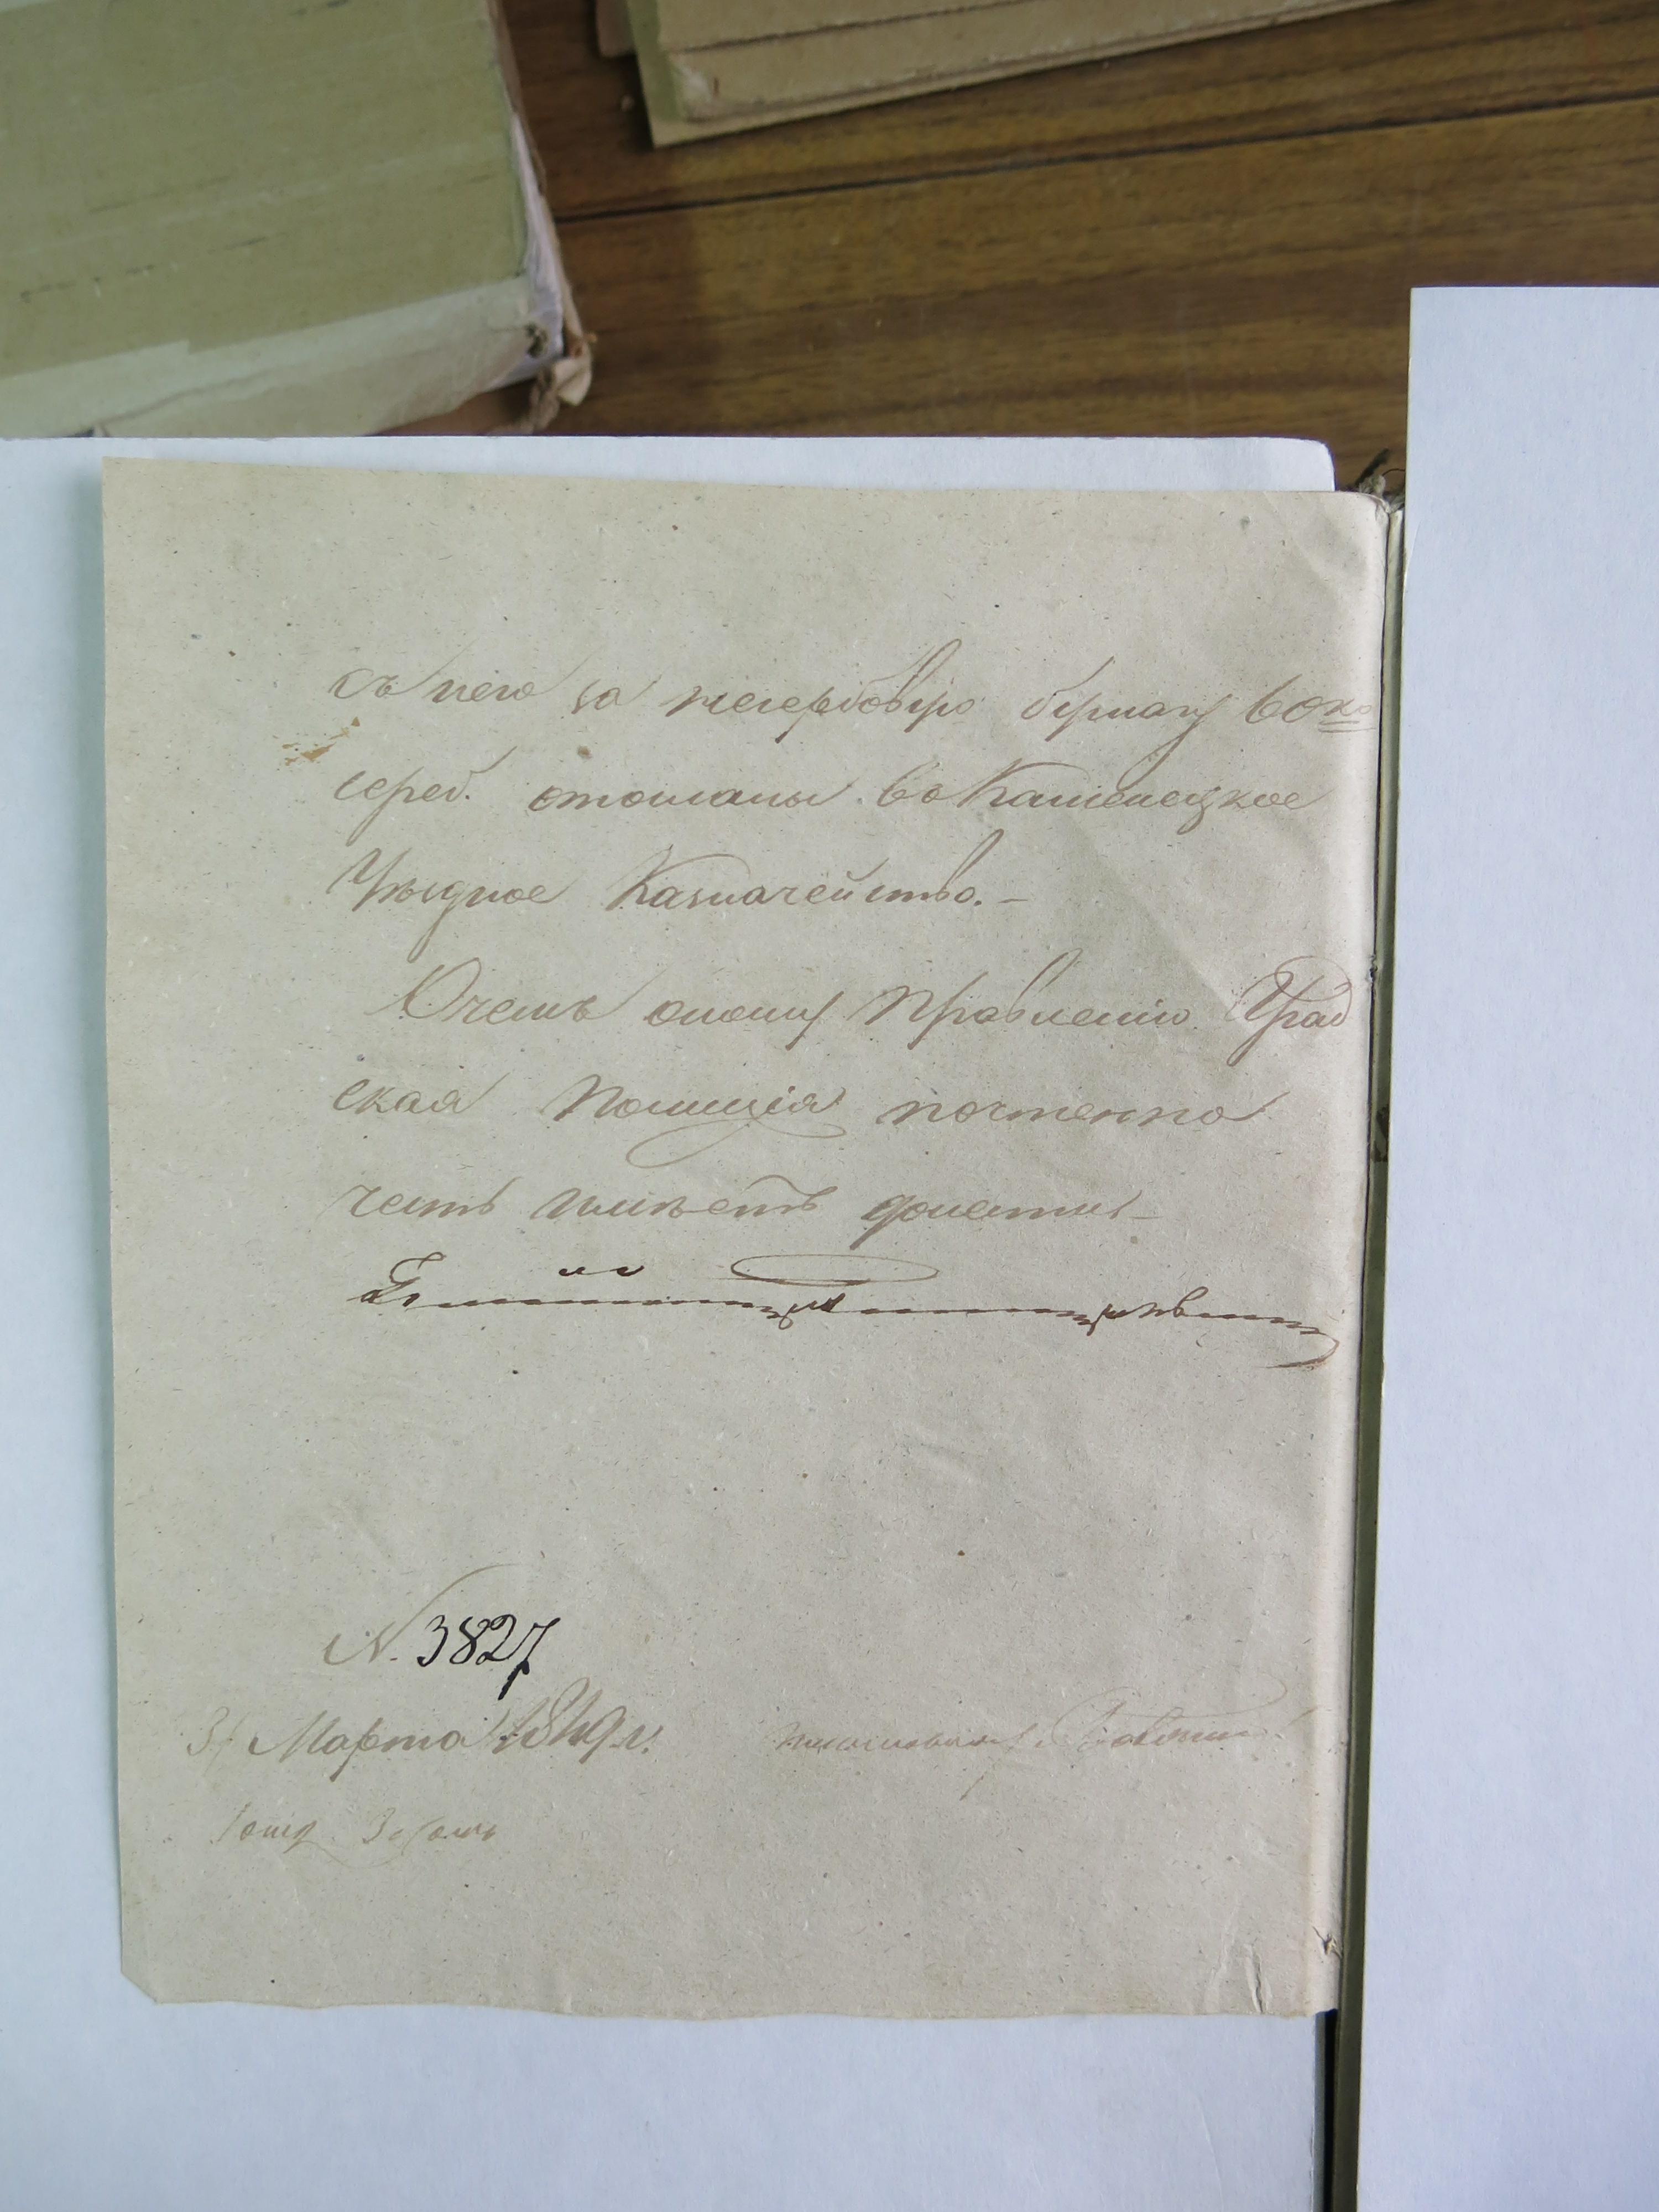 съ него за негербовую бумагу 60 ко
сереб. отосланы во Каменецкое
Уѣздное Казначейство.—
Очемъ оному Правленію Град
ская Полиція почтенно
честь имѣетъ донести—
N. 3827
31 Марта 1849 г.